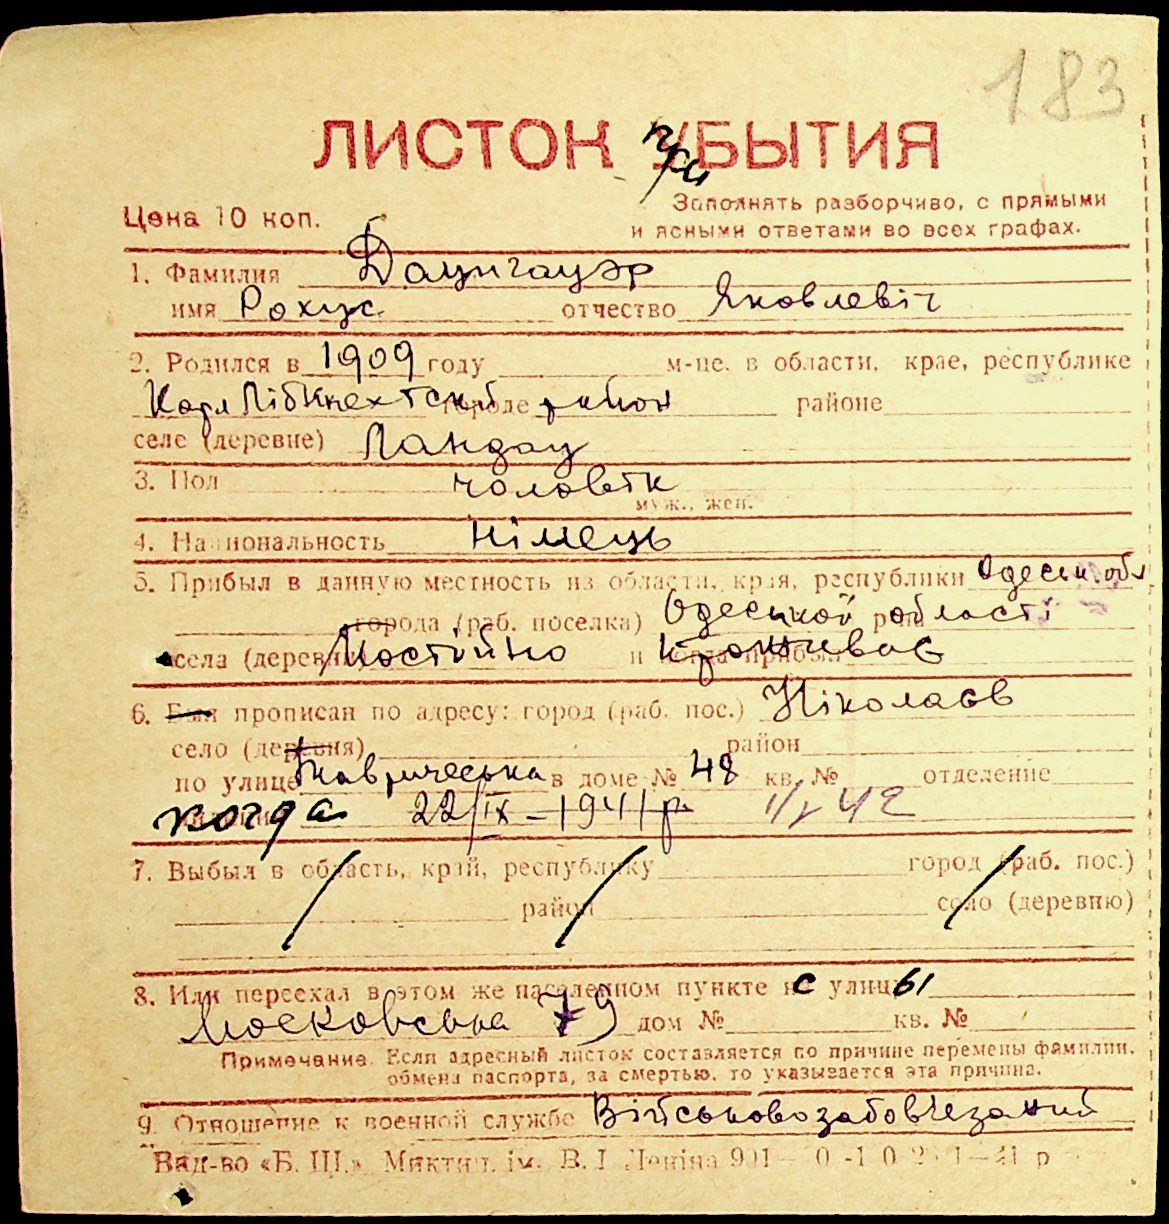 183
ЛИСТОК УБЫТИЯ
при
Цена 10 коп.
Заполнять разборчиво, с прямыми
и ясными ответами во всех графах.
1. Фамилия Даунгауэр
имя Рохус отчество Яковлевіч
2. Родился в 1909 году м-це, в области, крае, республике
Карл Лібкнехтский городе район районе
селе (деревне) Ландау
3. Пол чоловік
муж., жен.
4. Национальность німець
5. Прибыл в данную местность из области, края, республики Одеськ. обл
города (раб. поселка) Одеської області
села (деревни) Постійно и когда прибыл проживає
6. Был прописан по адресу: город (раб. пос.) Ніколаєв
село (деревня) район
по улице Тавричеська в доме № 48 кв. № отделение
когда 22/ІХ-1941р
7. Выбыл в область, край, республику город (раб. пос.)
район село (деревню)
8. Или переехал в этом же населенном пункте с улицы
Московська 79 дом № кв. №
Примечание. Если адресный листок составляется по причине перемены фамилии,
обмена паспорта, за смертью, то указывается эта причина.
9. Отношение к военной службе Військовозабов'езаний
Вид-во «Б. Ш.» Микт ім. В. І. Леніна